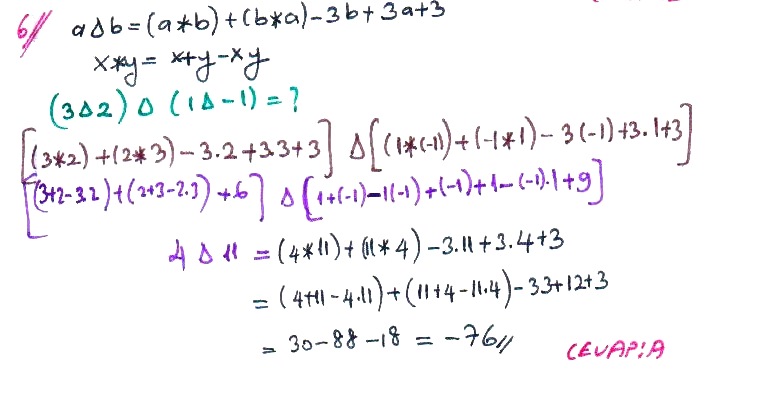 6// a∆b=(a*b)+(b*a)-3b+3a+3
x*y= x+y-xy
(3∆2) ∆ (1∆-1)=?
[(3*2)+(2*3)-3.2+3.3+3] ∆ [(1*(-1))+(-1*1)-3(-1)+3.1+3]
[(3+2-3.2)+(2+3-2.3)+6] ∆ [1+(-1)-1(-1)+(-1)+1-(-1).1+9]
4 ∆ 11 = (4*11)+(11*4)-3.11+3.4+3
= (4+11-4.11)+(11+4-11.4)-33+12+3
= 30-88-18 = -76//
CEVAP:A